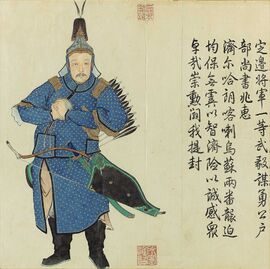 定邊將軍一等武毅謀勇公戶
部尚書兆惠
濟爾哈朗客喇烏蘇兩番報迫
均保無虞以智濟險以誠感衆
卓哉崇勳閫我提封